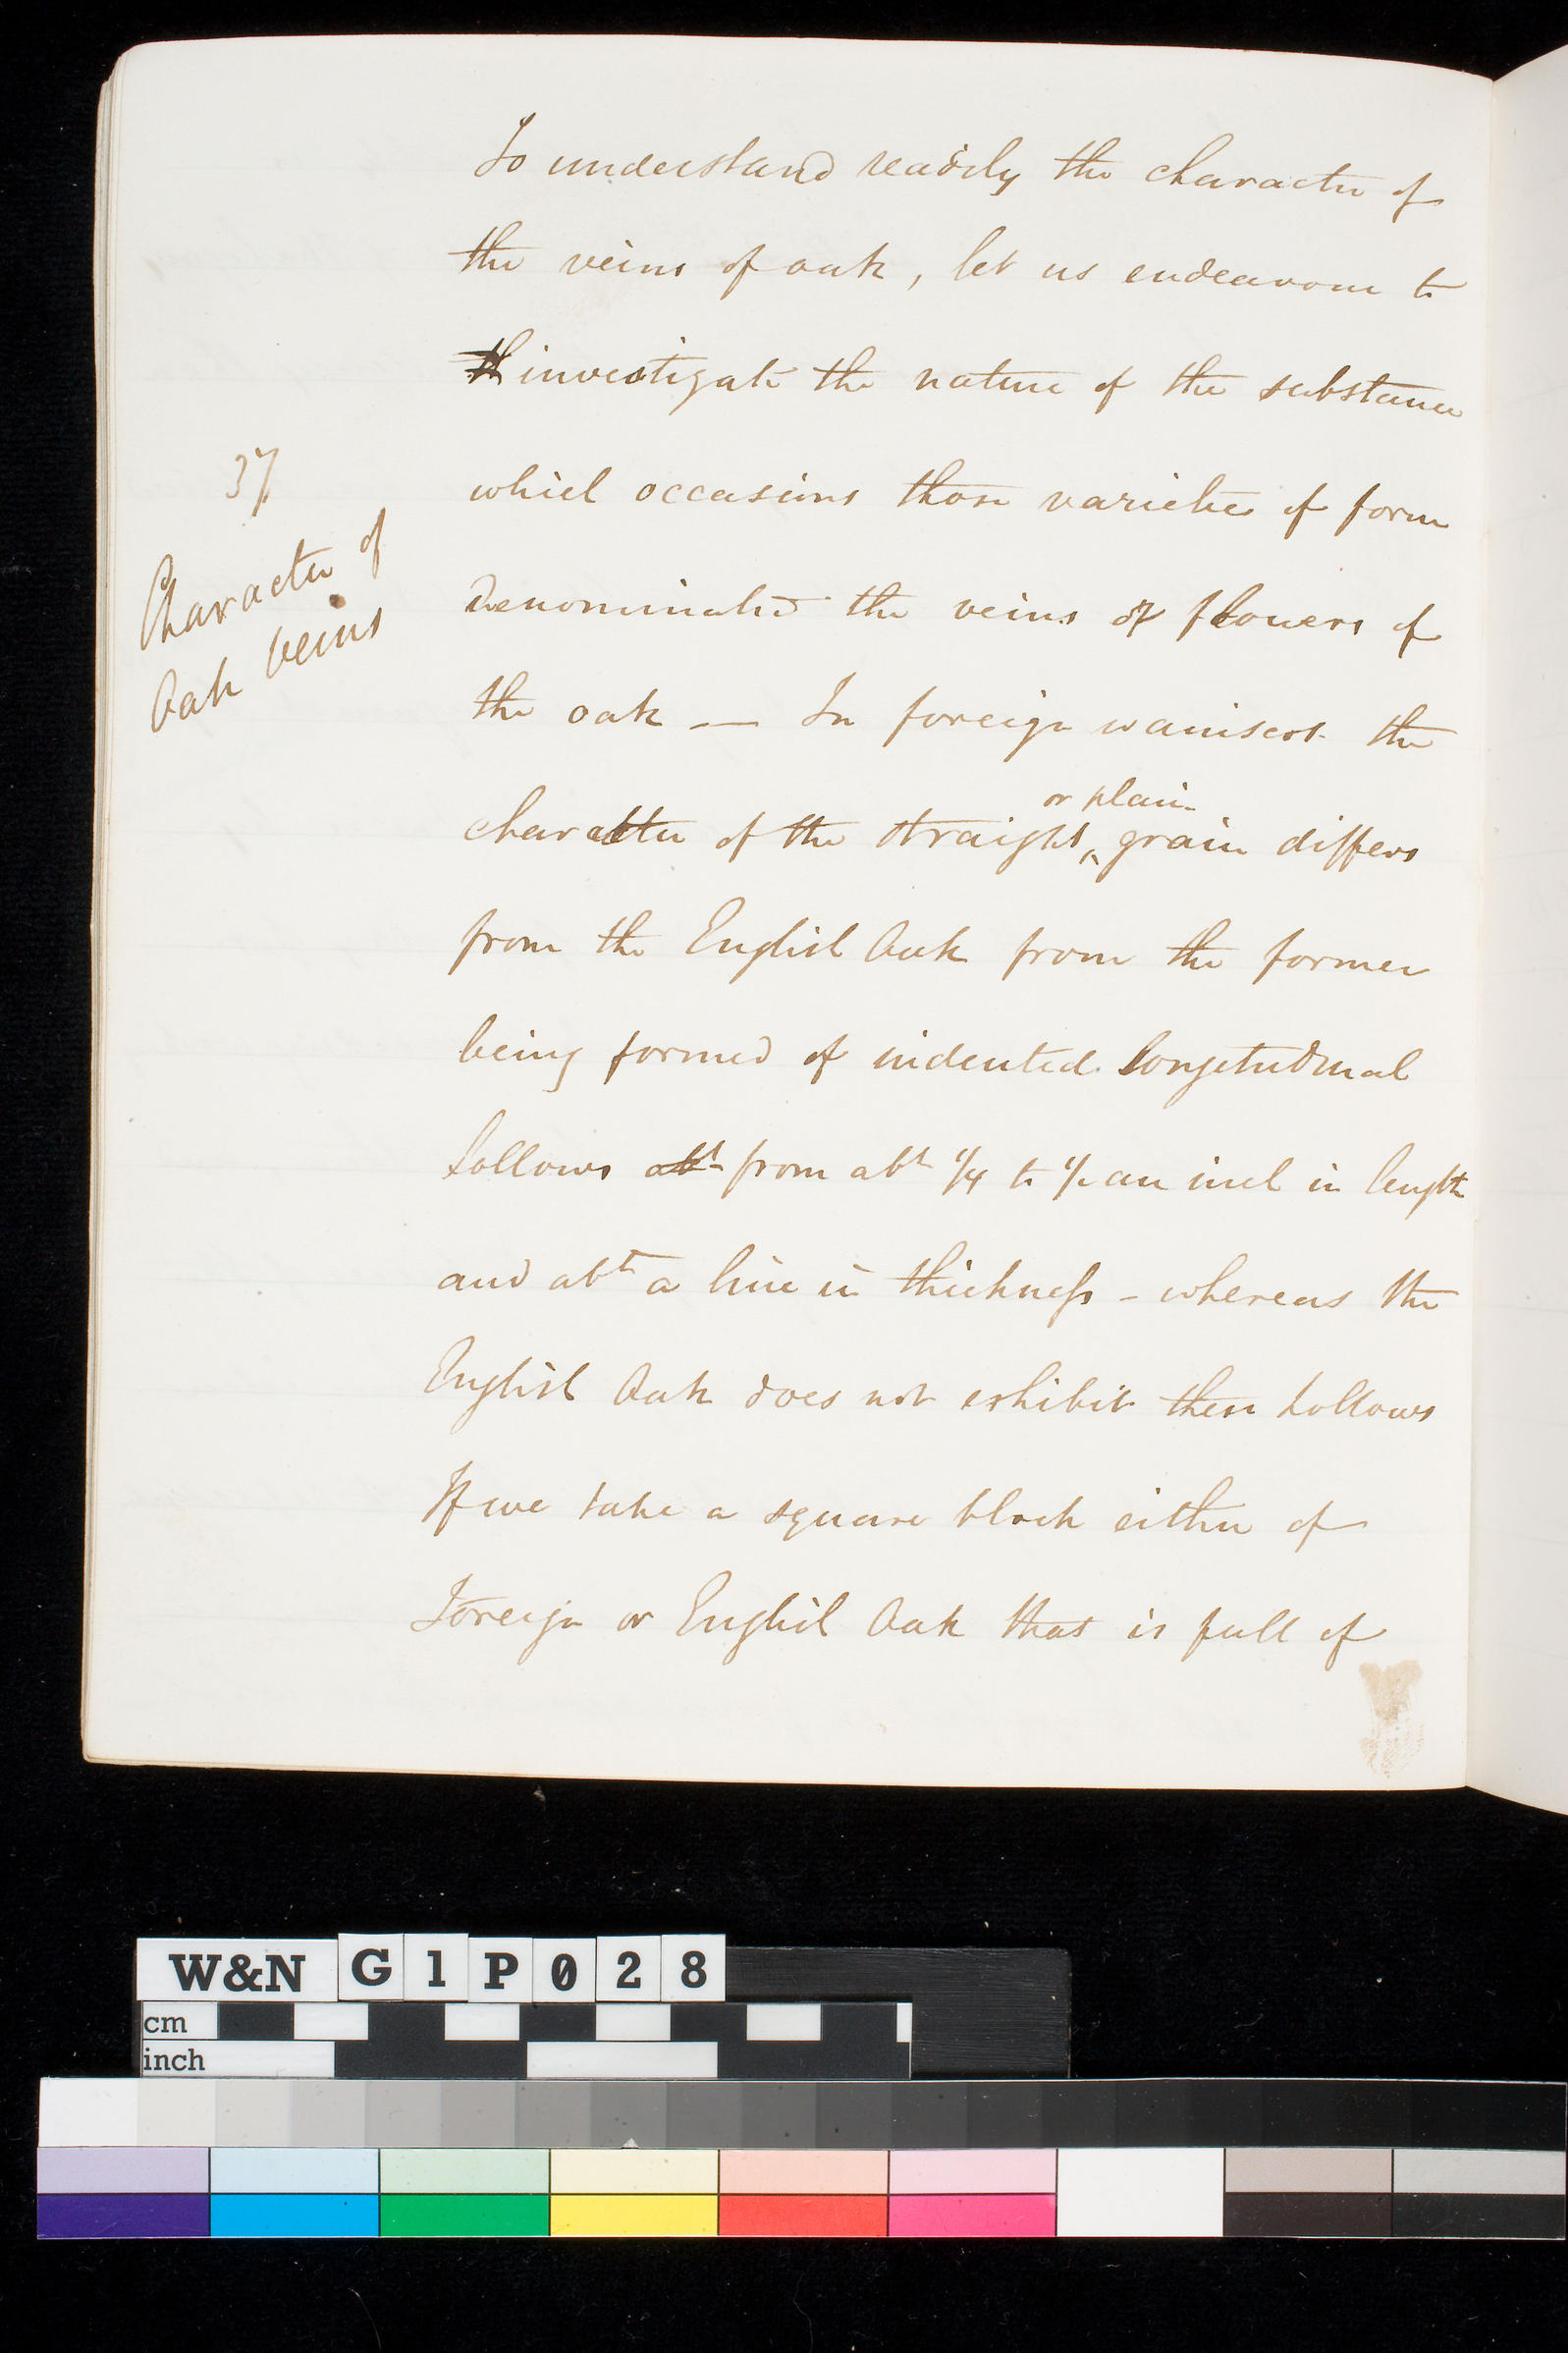 To understand readily the character of
the veins of oak, let us endeavour to
investigate the nature of the substance
which occasions those varieties of form
37
Character of
Oak veins
denominated the veins or flowers of
the oak — In foreign wainscot the
or plain
character of the straight grain differs
from the English Oak from the former
being formed of indented longitudinal
hollows abt from abt 1/4 to 1/2 an inch in length
and abt a line in thickness - whereas the
English Oak does not exhibit these hollows
If we take a square block either of
Foreign or English Oak that is full of
W&N G1P028
cm
inch